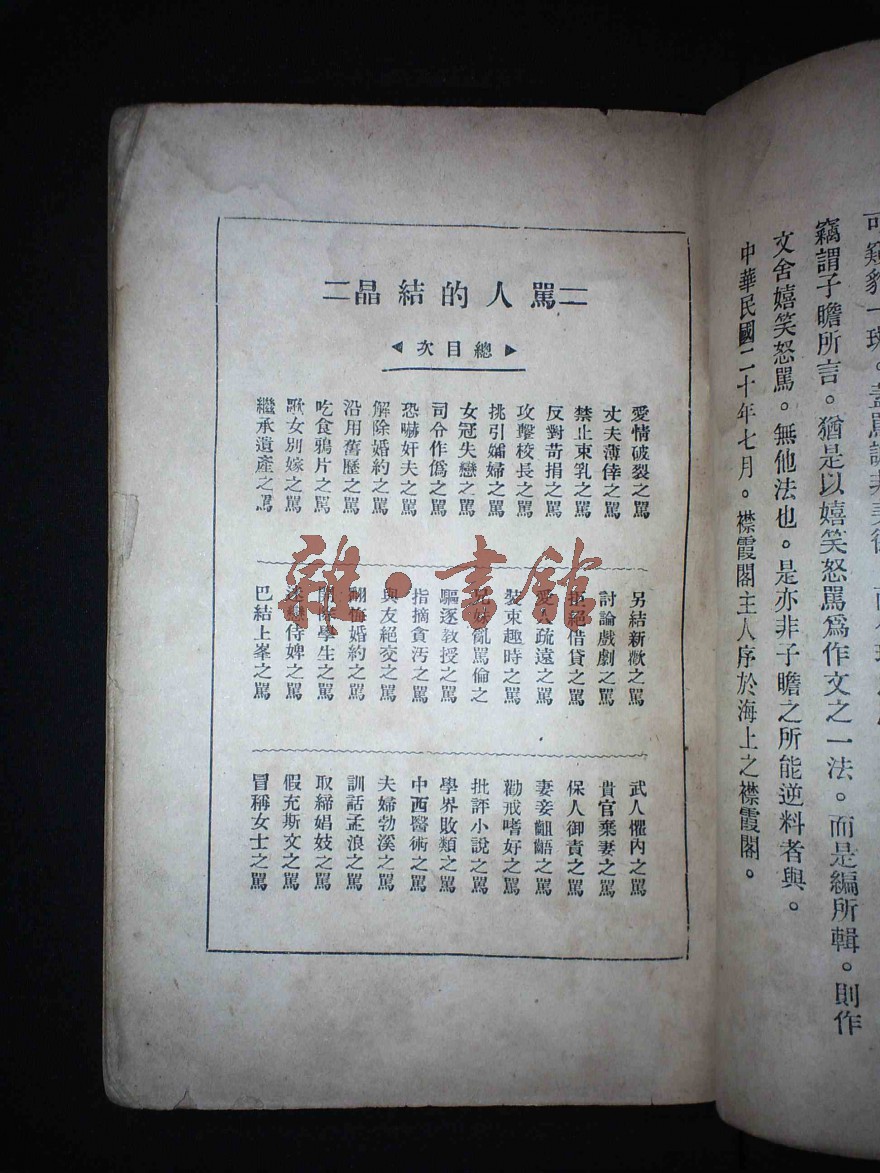 可窺豹一斑。
竊謂子瞻所言。猶是以嬉笑怒罵爲作文之一法。而是編所輯。則作
文舍嬉笑怒罵。無他法也。是亦非子瞻之所能逆料者與。
中華民國二十年七月。襟霞閣主人序於海上之襟霞閣。
罵人的結晶
總目次
愛情破裂之罵
丈夫薄倖之罵
禁止束乳之罵
反對苛捐之罵
攻擊校長之罵
挑引孀婦之罵
女冠失戀之罵
司令作僞之罵
恐嚇奸夫之罵
解除婚約之罵
沿用舊歷之罵
吃食鴉片之罵
歌女別嫁之罵
繼承遺產之罵
另結新歡之罵
討論戲劇之罵
拒絕借貸之罵
愛人疏遠之罵
裝束趣時之罵
兄妹亂罵倫之
驅逐教授之罵
指摘貪汚之罵
與友絕交之罵
翻悔婚約之罵
開除學生之罵
迷戀侍婢之罵
巴結上峯之罵
武人懼內之罵
貴官棄妻之罵
保人卸責之罵
妻妾齟齬之罵
勸戒嗜好之罵
批評小說之罵
學界敗類之罵
中西醫術之罵
夫婦勃溪之罵
訓話孟浪之罵
取締娼妓之罵
假充斯文之罵
冒稱女士之罵
雜·書館